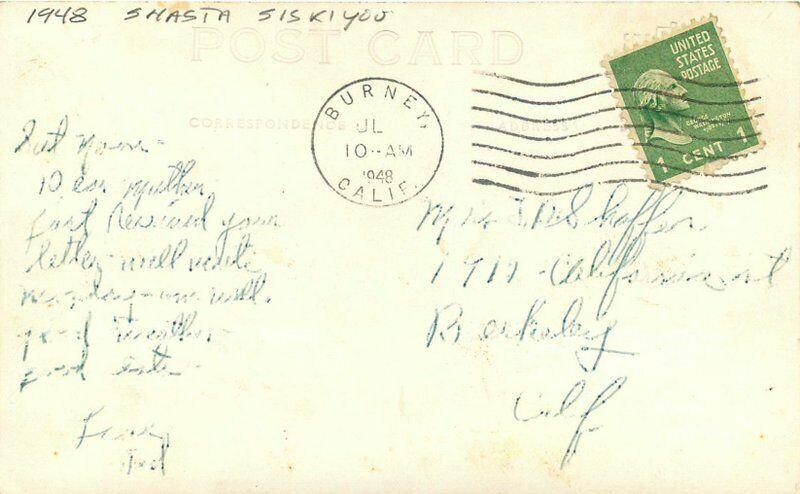 1948 SHASTA SISKIYOU
POST CARD
CORRESPONDENCE
ADDRESS
BURNEY,
JL
10-AM
1948
CALIF.
UNITED
STATES
POSTAGE
GEORGE
WASHINGTON
1 CENT 1
Dear mother
Just Received your
letter will write
will.
good weather
good
Ted
Mrs Shaffer
California st
Berkeley
Calif